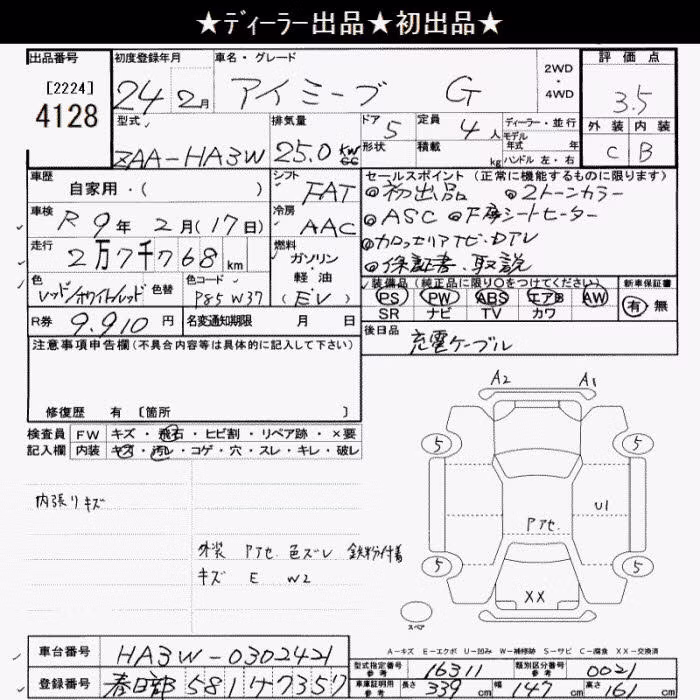 ★ディーラー出品★初出品★
出品番号
[2224]
4128
初度登録年月
24年2月
車名・グレード
アイミーブ G
2WD・4WD
評価点
3.5
外装 内装
C B
型式
ZAA-HA3W
排気量
25.0 KW CC
ドア 5
形状
定員 4人
積載 kg
ディーラー・並行
モデル年式 年
ハンドル 左・右
車歴
自家用・( )
シフト
FAT
セールスポイント(正常に機能するものに限ります)
◎初出品 ◎2トーンカラー
◎ASC
◎保証書・取説
車検
R9年2月(17日)
冷房
AAC
走行
2万7千768km
燃料
ガソリン・軽油
(EV)
色
レッド/ホワイト/レッド
色替
色コード
P85 W37
装備品(純正品に限り○をつけてください)
PS PW ABS エアB AW
SR ナビ TV カワ
新車保証書
有・無
R券
9.910円
名変通知期限 月 日
後日品
充電ケーブル
注意事項申告欄(不具合内容等は具体的に記入して下さい)
修復歴 有 〔箇所 〕
検査員記入欄
FW キズ・飛石・ヒビ割・リペア跡・×要
内装 キズ・汚レ・コゲ・穴・スレ・キレ・破レ
内張りキズ
外装 Pアセ 色ズレ 鉄粉付着
キズ E W2
A2 A1
5 5
U1
Pアセ.
5 5
XX
スペア
A-キズ E-エクボ U-凹み W-補修跡 S-サビ C-腐食 XX-交換済
車台番号
HA3W-0302421
型式指定番号 参考
16311
類別区分番号 参考
0021
登録番号
春日部 581 サ7357
車庫証明用 参考
長さ 339cm 幅 147cm 高さ 161cm